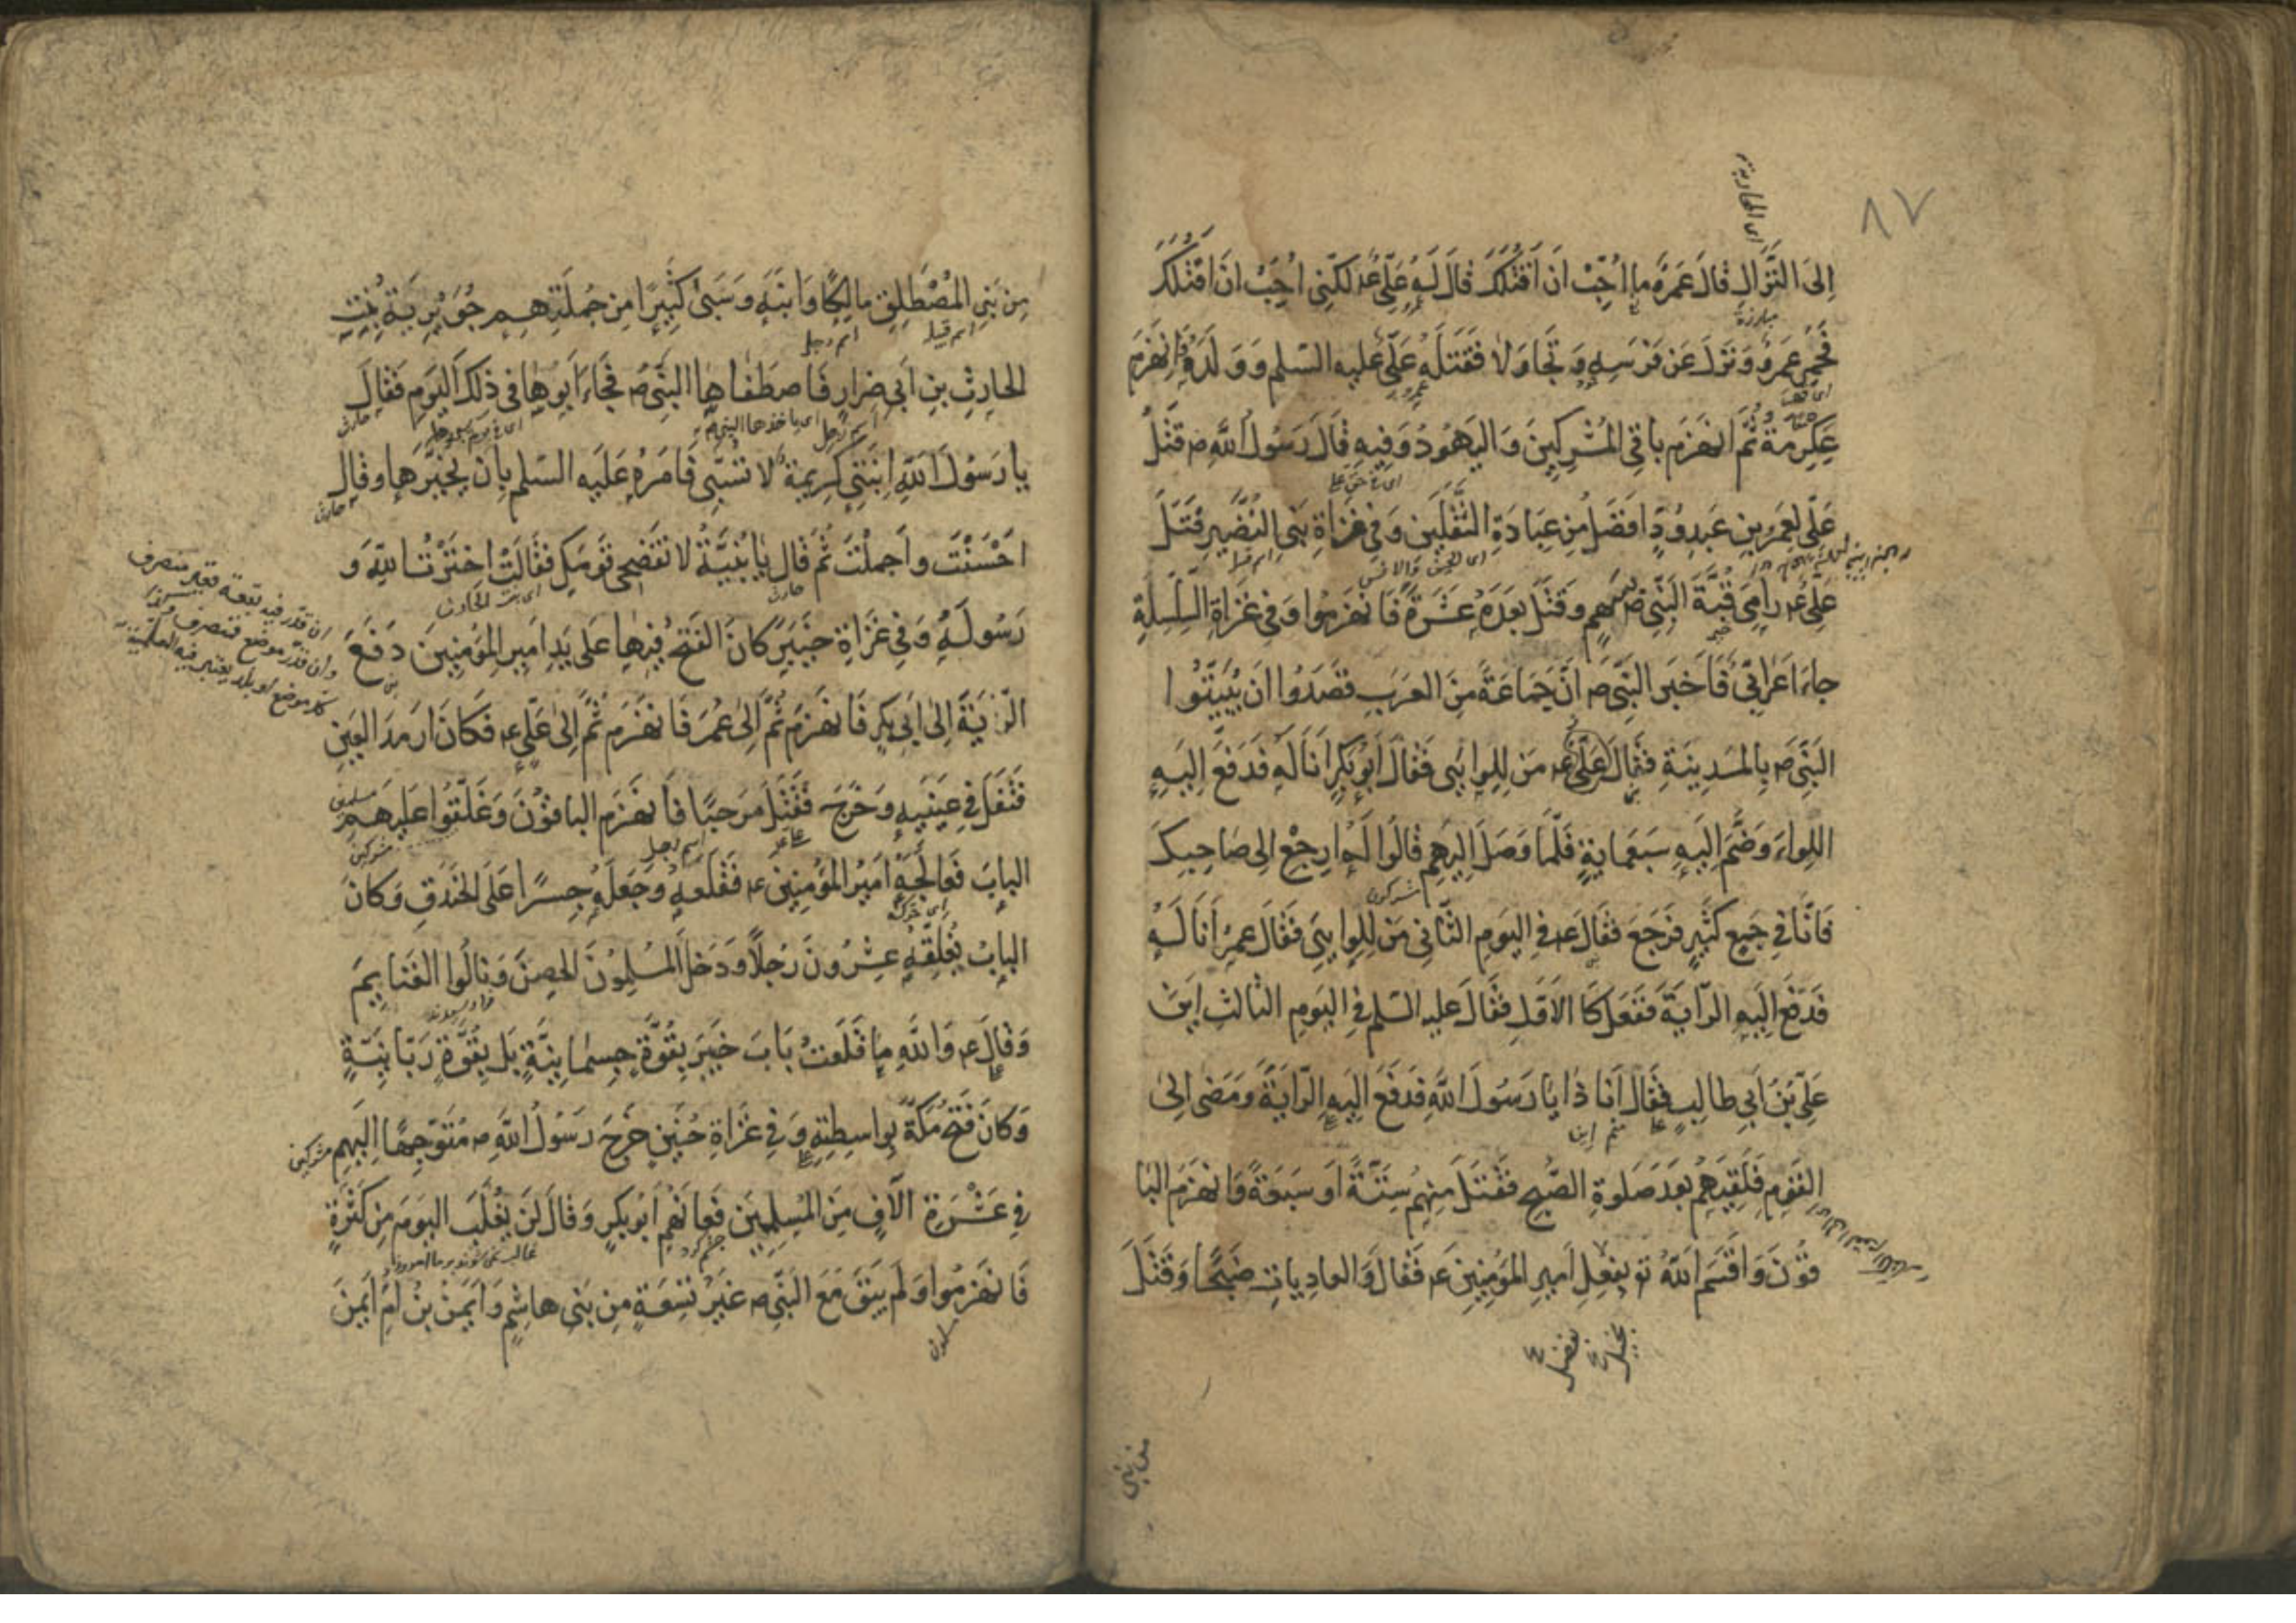 ٨٧
اى المحاربة
اِلىَ النِّزالِ فالَ عَمرٌو ما اُحِبُّ اَن اَقتُلَكَ قالَ لَهُ عَلِىٌّ ع لكِنّى اُحِبُّ اَن اَقتُلَكَ
مبارزة
فَحَمِىَ عَمرٌو وَنَزَلَ عَن فَرَسِهِ وَ تَجاوَلا فَقَتَلَهُ عَلىٌّ عليه السّلم وَ وَلَدَهُ وَانهَزَمَ
عِكرِمَةُ ثُمَّ انهَزَمَ باقِى المُشرِكينَ وَ اليَهُودُ وَفيهِ قالَ رَسُولُ اللهِ ص قَتلُ
عَلىٍّ لِعَمرِو بنِ عَبدِوُدٍّ اَفضَلُ مِن عِبادَةِ الثَّقَلَينِ وَفى غَزاةِ بَنِى النُّضَيرِ قَتَلَ
اى الجن والانس
اسم قبيلة
عَلىٌّ ع رامِىَ قُبَّةَ النَّبِىِّ ص بِسَهمٍ وَقَتَلَ بَعدَهُ عَشَرَةً فَانهَزَمُوا وَفى غَزاةِ السِّلسِلَةِ
جاءَ اَعرابىٌّ فَاَخبَرَ النَّبِىَّ ص اَنَّ جَماعَةً مِنَ العَرَبِ قَصَدُوا اَن يُبَيِّتُوا
النَّبِىَّ ص بِالمَدِينَةِ فَقالَ عَلىٌّ ع مَن لِلِوائى فَقالَ اَبُوبَكرٍ اَنَا لَهُ فَدَفَعَ اِلَيهِ
اللِواءَ وَضَمَّ اِلَيهِ سَبعَمايةٍ فَلَمّا وَصَلَ اِلَيهِم قالُوا لَهُ اِرجِع اِلى صاحِبِكَ
مشركون
فَانّا فى جَمعٍ كَثيرٍ فَرَجَعَ فَقالَ ع فى اليَومِ الثّانى مَن لِلِوائى فَقالَ عُمَرُ اَنَا لَهُ
فَدَفَعَ اِلَيهِ الرّايَةَ فَفَعَلَ كَالاَوَّلِ فَقالَ عليه السّلم فى اليَومِ الثالثِ اَينَ
عَلىُّ بنُ اَبى طالِبٍ فَقالَ اَنا ذا يا رَسُولَ اللهِ فَدَفَعَ اِلَيهِ الرّايَةَ وَمَضى اِلىَ
القَومِ فَلَقِيَهُم بَعدَ صَلوةِ الصُّبحِ فَقَتَلَ مِنهُم سِتَّةً اَو سَبعَةً وَانهَزَمَ البا
قُونَ وَ اَقسَمَ اللهُ تع بِفِعلِ اَميرِ المُؤمِنينَ ع فَقالَ وَالعادِياتِ ضَبحًا وَقَتَلَ
من بنى
مِن بَنِى المُصطَلِقِ مالِكًا وَابنَهُ وَسَبىٰ كَثيرًا مِن جُملَتِهِم جُوَيرِيَةُ بِنتِ
اسم قبيلة
اسم رجل
الحارِثِ بنِ اَبى ضِرارٍ فَاصطَفاها النَّبِىُّ ص فَجاءَ اَبُوها فى ذلِكَ اليَومِ فَقالَ
حارث
يا رَسُولَ اللهِ اِبنَتى كَريمَةٌ لا تُسبىٰ فَاَمَرَهُ عَلَيهِ السّلم بِاَن يُخَيِّرَها وَقالَ
حارث
اَحسَنتَ وَاَجمَلتَ ثُمَّ قالَ يا بُنَيَّةُ لا تَفضَحى قَومَكِ فَقالَت اِختَرتُ اللهَ وَ
حارث
اى بنت الحارث
رَسُولَهُ وَفى غَزاةِ خَيبَرَ كانَ الفَتحُ فيها عَلى يَدِ اَميرِ المُؤمِنينَ دَفَعَ
الرّايَةَ اِلىٰ اَبى بَكرٍ فَانهَزَمَ ثُمَّ اِلىٰ عُمَرَ فَانهَزَمَ ثُمَّ اِلىٰ عَلىٍّ ع فَكانَ اَرمَدَ العَينِ
فَتَفَلَ فى عَينَيهِ وَخَرَجَ فَقَتَلَ مَرحَبًا فَانهَزَمَ الباقُونَ وَغَلَّقُوا عَلَيهِم
اسم رجل
مسلمين
مشركين
البابَ فَعالَجَهُ اَميرُ المُؤمِنينَ ع فَقَلَعَهُ وَجَعَلَهُ جِسرًا عَلَى الخَندَقِ وَكانَ
البابُ يُغلِقُهُ عِشرُونَ رَجُلاً وَدَخَلَ المُسلِمُونَ الحِصنَ وَنالُوا الغَنايِمَ
وَقالَ ع وَاللهِ ما قَلَعتُ بابَ خَيبَرَ بِقُوَّةٍ جِسمانِيَّةٍ بَل بِقُوَّةٍ رَبّانِيَّةٍ
وَكانَ فَتحُ مَكَّةَ بِواسِطَتِهِ وَفى غَزاةِ حُنَينٍ خَرَجَ رَسُولُ اللهِ ص مُتَوَجِّهًا اِلَيهِم
مشركين
فى عَشَرَةِ آلافٍ مِنَ المُسلِمينَ فَعانَهُم اَبُوبَكرٍ وَقالَ لَن نُغلَبَ اليَومَ مِن كَثرَةٍ
چشم كرد
فَانهَزَمُوا وَلَم يَبقَ مَعَ النَّبِىِّ ص غَيرُ تِسعَةٍ مِن بَنى هاشِمٍ وَاَيمَنُ بنُ اُمِّ اَيمَنَ
مسلمون